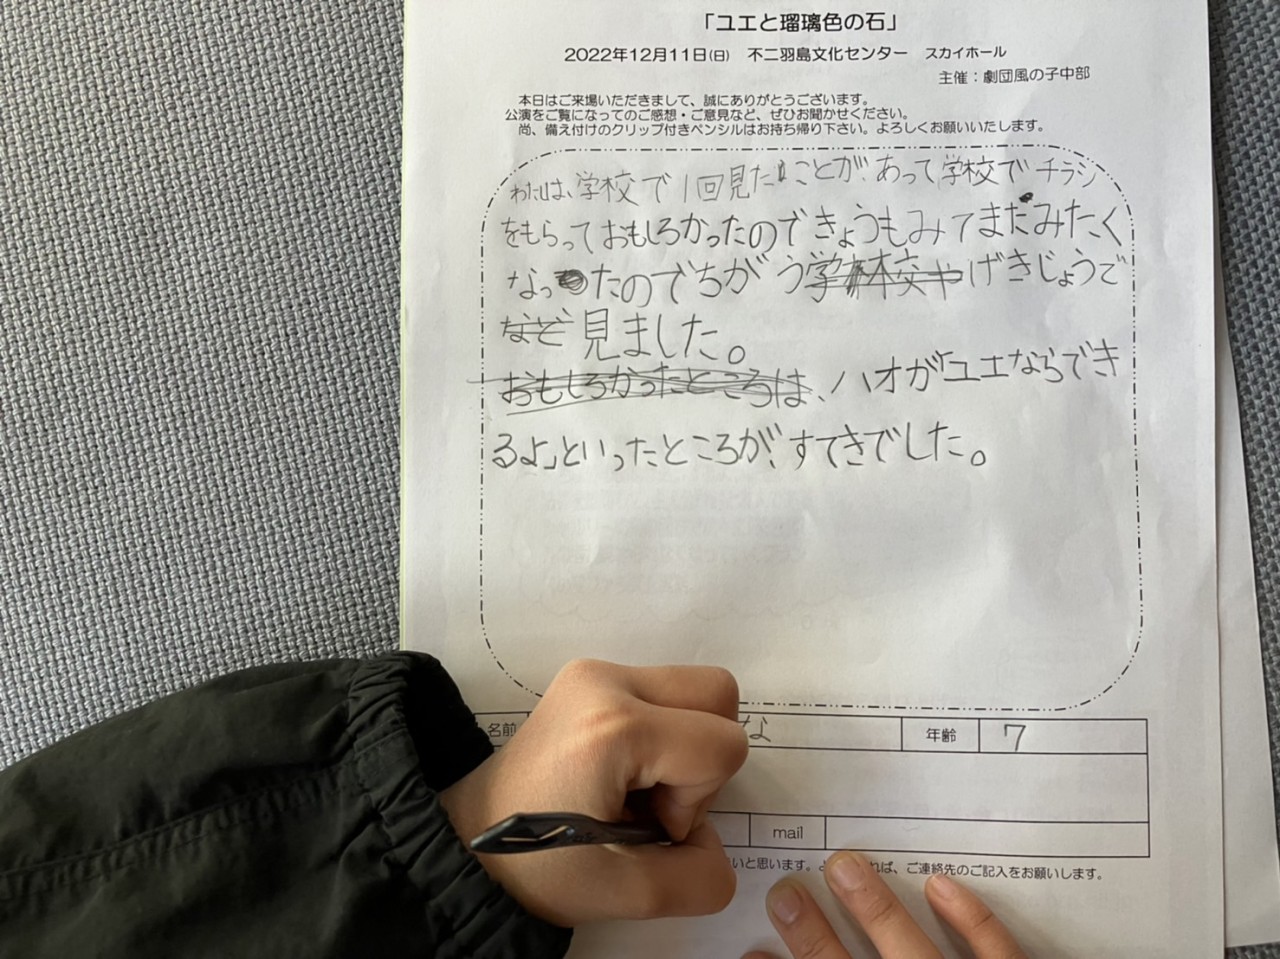 「ユエと瑠璃色の石」
2022年12月11日(日) 不二羽島文化センター スカイホール
主催：劇団風の子中部
本日はご来場いただきまして、誠にありがとうございます。
公演をご覧になってのご感想・ご意見など、ぜひお聞かせください。
尚、備え付けのクリップ付きペンシルはお持ち帰り下さい。よろしくお願いいたします。
わたしは、学校で1回見たことが、あって学校でチラシ
をもらっておもしろかったのできょうもみてまたみたく
なったのでちがう学校やげきじょうで
など見ました。
おもしろかったところは、ハオが「ユエならでき
るよ」といったところが、すてきでした。
名前 な 年齢 7
mail
いと思います。よ れば、ご連絡先のご記入をお願いします。